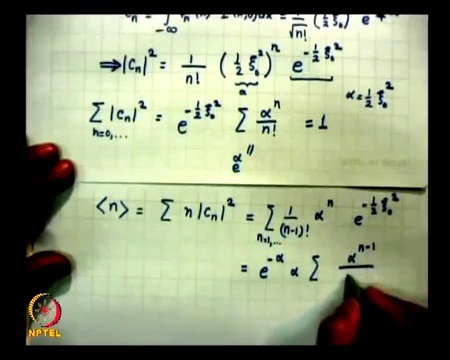 cₙ = ∫ -∞ dx = 1/√n! (½ ξ₀²) e
⟹ |cₙ|² = 1/n! (½ ξ₀²)ⁿ e^(-½ ξ₀²)
α
α = ½ ξ₀²
Σ_{n=0,...} |cₙ|² = e^(-½ ξ₀²) Σ αⁿ/n! = 1
e^α
⟨n⟩ = Σ n |cₙ|² = Σ_{n=1,...} 1/(n-1)! αⁿ e^(-½ ξ₀²)
= e^(-α) α Σ α^(n-1)
NPTEL